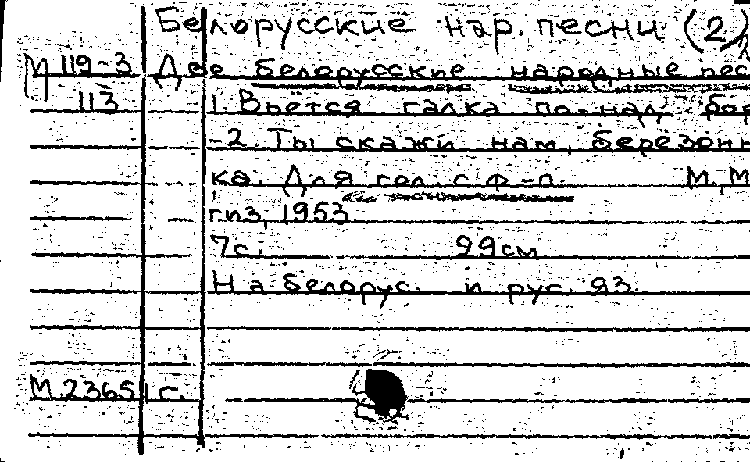 Белорусские нар. песни (2)
М 119-3 Две белорусские народные пес
113 1. Вьется галка по-над бор
-2. Ты скажи нам, березонь
ка. Для гол. с ф.-п. М., М
гиз, 1953
7с. 29см
На белорус. и рус. яз.
М.23651 г.